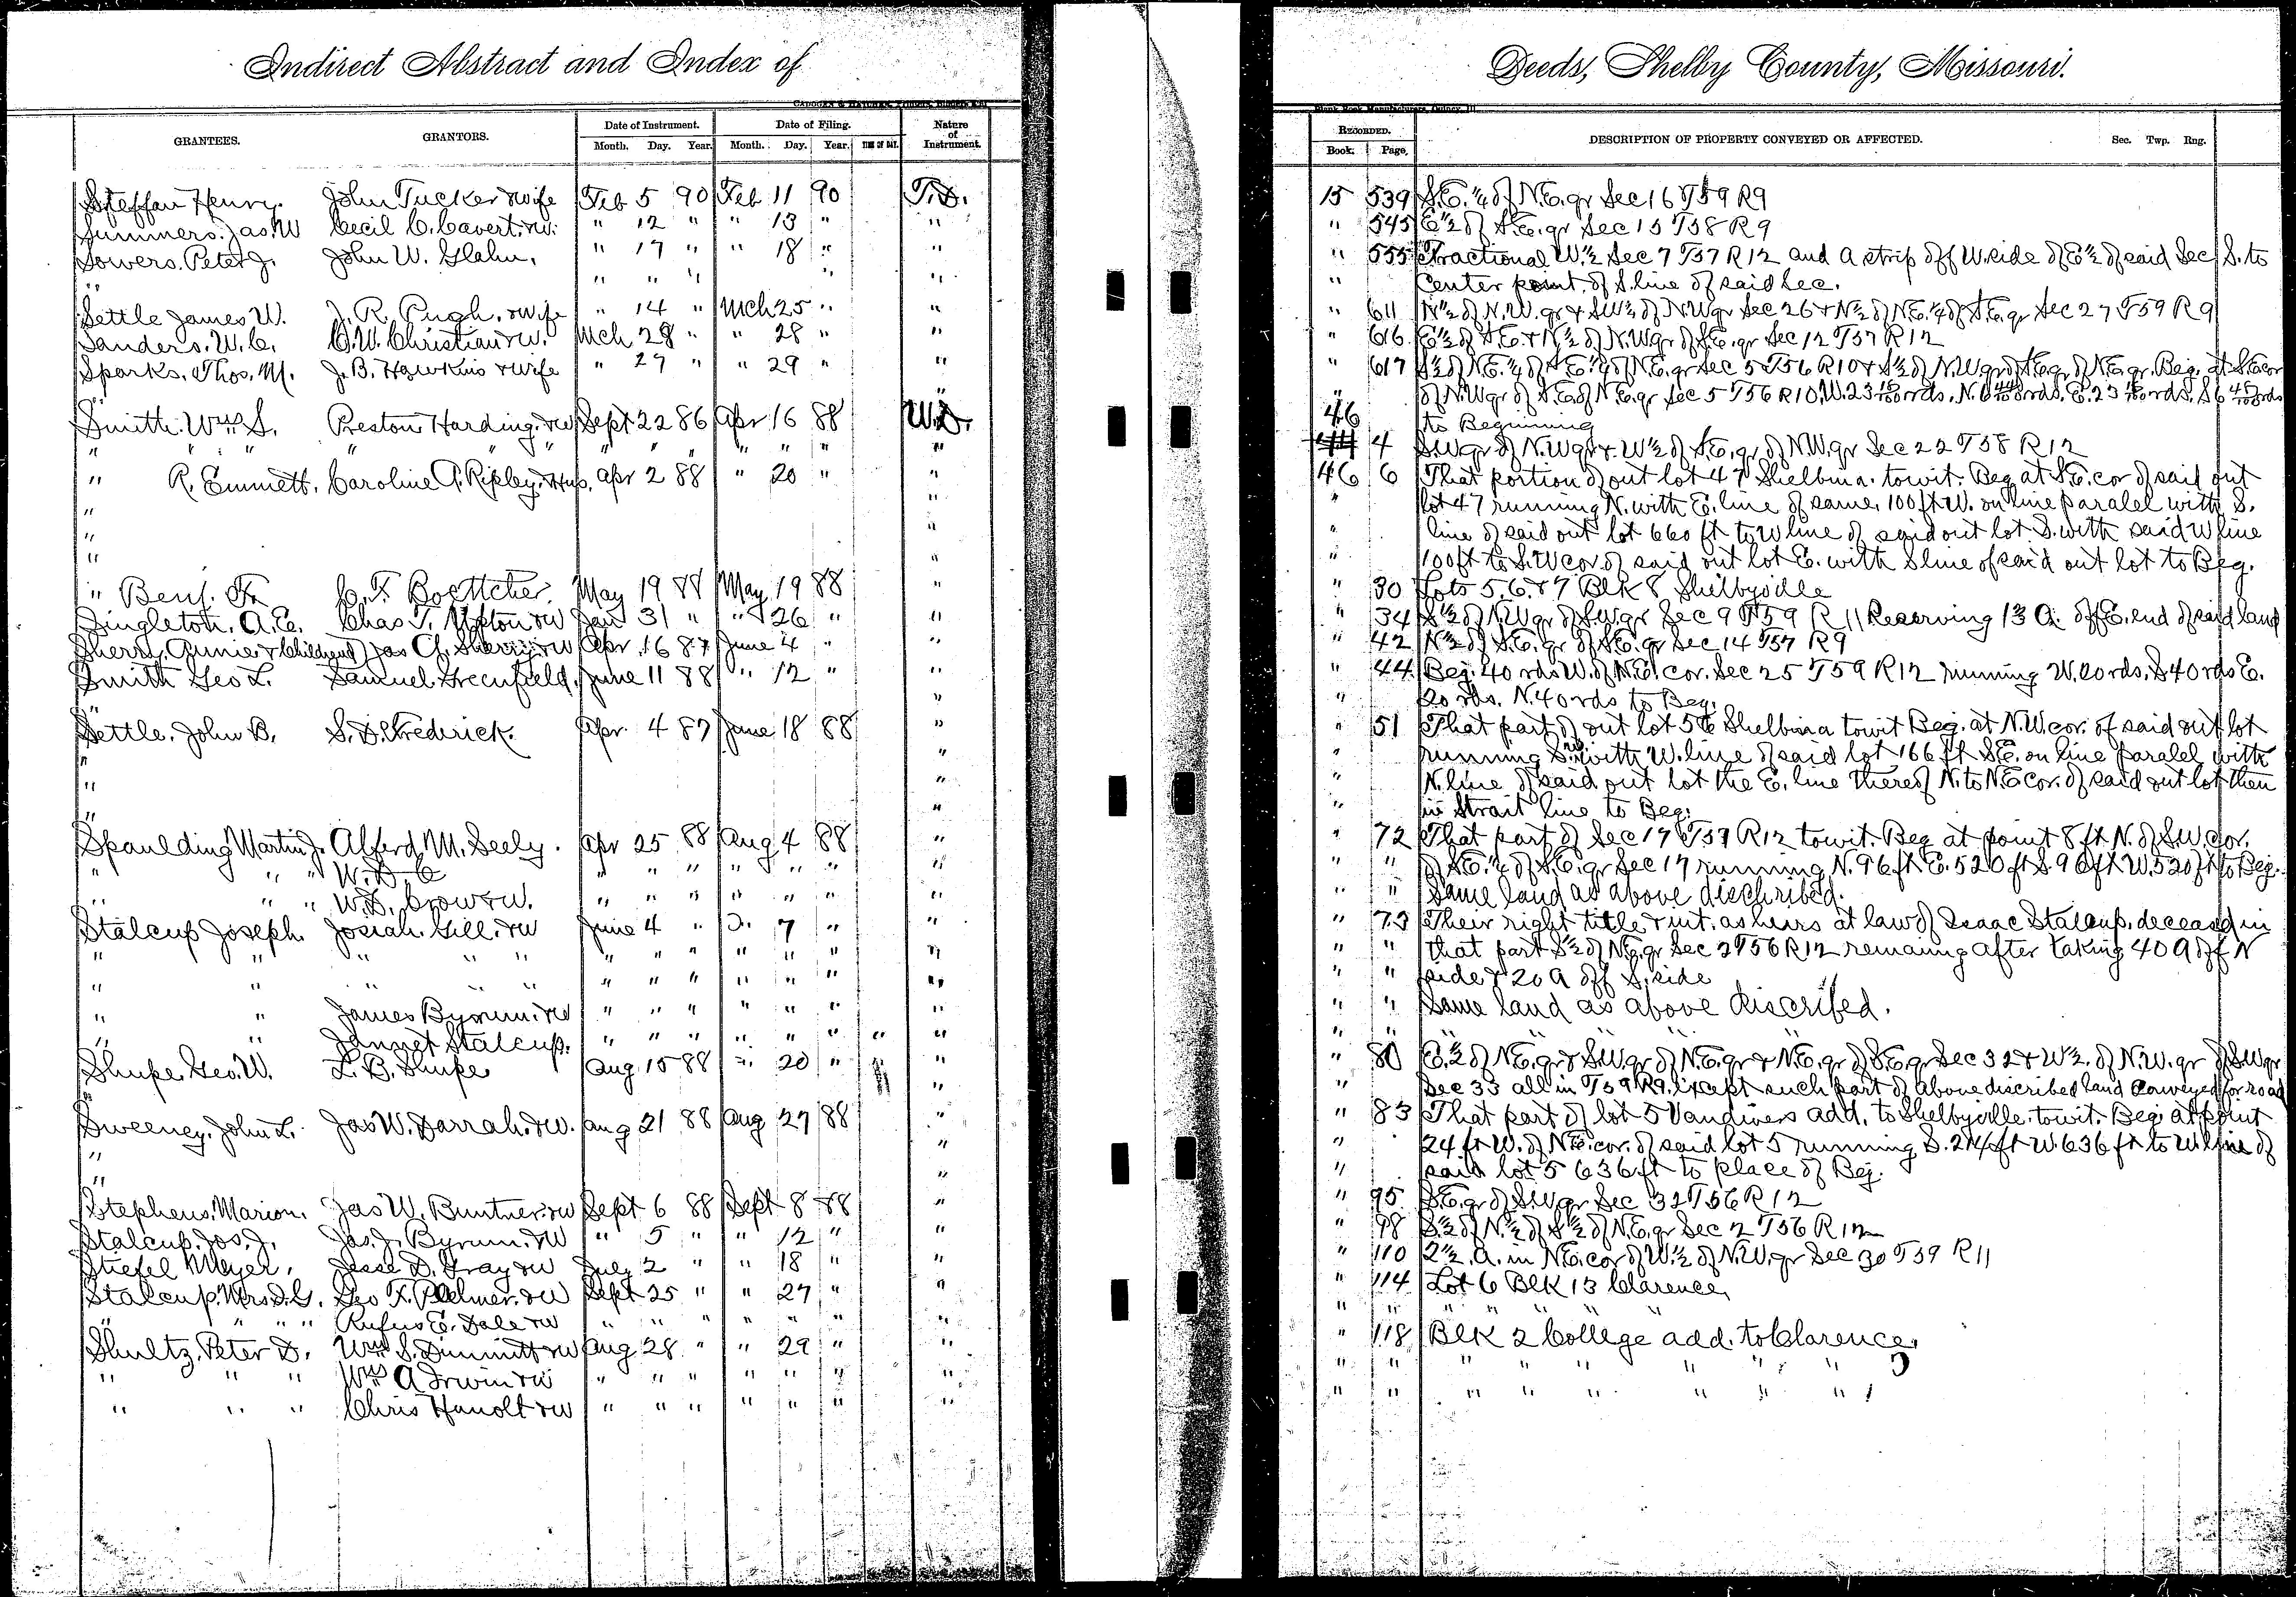 Indirect Abstract and Index of
Deeds, Shelby County, Missouri.
GRANTEES. GRANTORS. Date of Instrument. Date of Filing. Nature of Instrument.
Month. Day. Year. Month. Day. Year. TIME OF DAY.
RECORDED. DESCRIPTION OF PROPERTY CONVEYED OR AFFECTED. Sec. Twp. Rng.
Book. Page.
Steffan Henry. John Tucker & wife Feb 5 90 Feb 11 90 T.D. 15 539 S.E. 1/4 of N.E. qr Sec 16 T59 R9
Summers. Jas. W Cecil C. Cavert. & W. " 12 " " 13 " " " 545 E 1/2 of S.E. qr Sec 15 T58 R9
Sowers. Peter J. John W. Glahn. " 17 " " 18 " " " 555 Fractional W 1/2 Sec 7 T57 R12 and a strip off W. side of E 1/2 of said Sec S. to
" " " " " " " Center point of S. line of said Sec.
Settle James W. J. R. Pugh. & wife " 14 " Mch 25 " " " 611 N 1/2 of N.W. qr & SW 1/2 of N.W qr Sec 26 & N 1/2 of N.E. 1/4 of S.E. qr Sec 27 T59 R9
Sanders. W. C. C. W. Christian & W. Mch 28 " " 28 " " " 616 E 1/2 of S.E. & N 1/2 of N.W qr of S.E. qr Sec 12 T57 R12
Sparks. Thos. M. J. B. Hawkins & wife " 27 " " 29 " " " 617 S 1/2 of N.E. 1/4 of S.E. 1/4 of N.E. qr Sec 5 T56 R10 & S 1/2 of N.W qr of S.E. qr of N.E. qr. Beg. at S.E cor
" of N.W qr. of S.E of N.E. qr Sec 5 T56 R10, W. 23 rds. N. 6 rds. E. 23 rds. S 6 rds
Smith. Wm S. Preston Harding. & W Sept 22 86 Apr 16 88 W.D. 46 to Beginning
" " " " " " " " " " " 4 S.W qr of N.W qr & W 1/2 of S.E. qr of N.W. qr Sec 22 T58 R12
" R. Emmett. Caroline A. Ripley. & Hus. Apr 2 88 " 20 " 46 6 That portion of out lot 47 Shelbina. towit. Beg at S.E. cor of said out
" " " lot 47 running N. with E. line of same. 100 ft W. on line paralel with S.
" " " line of said out lot 660 ft to W line of said out lot. S. with said W line
" " " 100 ft to S.W cor of said out lot E. with S line of said out lot to Beg.
" Benj. F. C. F. Boettcher. May 19 88 May 19 88 " " 30 Lots 5, 6, & 7 Blk 8 Shelbyville
Singleton. A. E. Chas T. Upton & W Jan 31 " " 26 " " " 34 S 1/2 of N.W qr of S.W. qr Sec 9 T59 R 11 Reserving 13 A. off E. end of said land
Sherry. Annie & Children Jas A. Sherry & W Apr. 16 87 June 4 " " " 42 N 1/2 of S.E. qr of S.E. qr Sec 14 T57 R9
Smith Geo L. Samuel Greenfield. June 11 88 " 12 " " " 44 Beg. 40 rds W. of N.E. cor. Sec 25 T59 R12 running W. 20 rds. S 40 rds E.
" " " 20 rds. N. 40 rds to Beg.
Settle. John B. S. D. Frederick. Apr. 4 87 June 18 88 " " 51 That part of out lot 56 Shelbina towit Beg. at N.W. cor. of said out lot
" " " running S. with W. line of said lot 166 ft S.E. on line paralel with
" " " N. line of said out lot the E. line thereof N. to N.E cor. of said out lot then
" " " in Strait line to Beg.
Spaulding Martin J. Alferd M. Seely. Apr 25 88 Aug 4 88 " " 72 That part of Sec 17 T57 R12 towit. Beg at point 8 ft N. of S.W. cor.
" " " W. D. C " " " " " " " " " of S.E. 1/4 of S.E. qr Sec 17 running N. 96 ft E. 520 ft S. 96 ft W. 520 ft to Beg.
" " " W. D. Crow & W. " " " " " " " " " Same land as above discribed.
Stalcup Joseph. Josiah Gill. & W June 4 " " 7 " " " 73 Their right title & int. as heirs at law of Isaac Stalcup, deceased in
" " " " " " " " " " " " " " that part S 1/2 of N.E. qr Sec 2 T56 R12 remaing after taking 40 A off N
" " " " " " " " " " " " " " side & 20 A off S. side
" " James Byrum. & W " " " " " " " " " Same land as above discribed.
" " Jannet Stalcup. " " " " " " " " " " " " " " "
Shupe. Geo. W. L. B. Shupe Aug 15 88 " 20 " " " 80 E. 1/2 of N.E. qr & S.W. qr of N.E. qr & N.E. qr of S.E. qr Sec 32 & W 1/2. of N.W. qr of S.W qr
" " " Sec 33 all in T59 R9. Except such part of above discribed land conveyed for road
Sweeney. John L. Jas W. Darrah. & W. Aug 21 88 Aug 27 88 " " 83 That part of lot 5 Vandivers add. to Shelbyville. towit. Beg. at point
" " " 24 ft W. of N.E. cor. of said lot 5 running S. 214 ft W. 636 ft to W. line of
" " " said lot 5 636 ft to place of Beg.
Stephens. Marion. Jas W. Buntner. & W Sept 6 88 Sept 8 88 " " 95 S.E. qr of S.W qr Sec 32 T56 R12
Stalcup. Jos. J. Jas. J. Byrum. & W " 5 " " 12 " " " 98 S. 1/2 of N. 1/2 of S 1/2 of N.E. qr Sec 2 T56 R12
Stiefel Meyer. Jesse D. Gray & W July 2 " " 18 " " " 110 2 1/2. A. in N.E. cor of W. 1/2 of N.W. qr Sec 30 T59 R11
Stalcup. Mrs. D. G. Geo F. Palmer. & W Sept 25 " " 27 " " " 114 Lot 6 BLK 13 Clarence,
" " " " Rufus E. Dale & W " " " " " " " " " " " " "
Shultz. Peter D. Wm S. Dimmitt & W Aug 28 " " 29 " " " 118 BLK 2 College add. to Clarence,
" " " Wm A Irwin & W " " " " " " " " " " " " " " "
" " " Chris Hanolt & W " " " " " " " " " " " " " " "